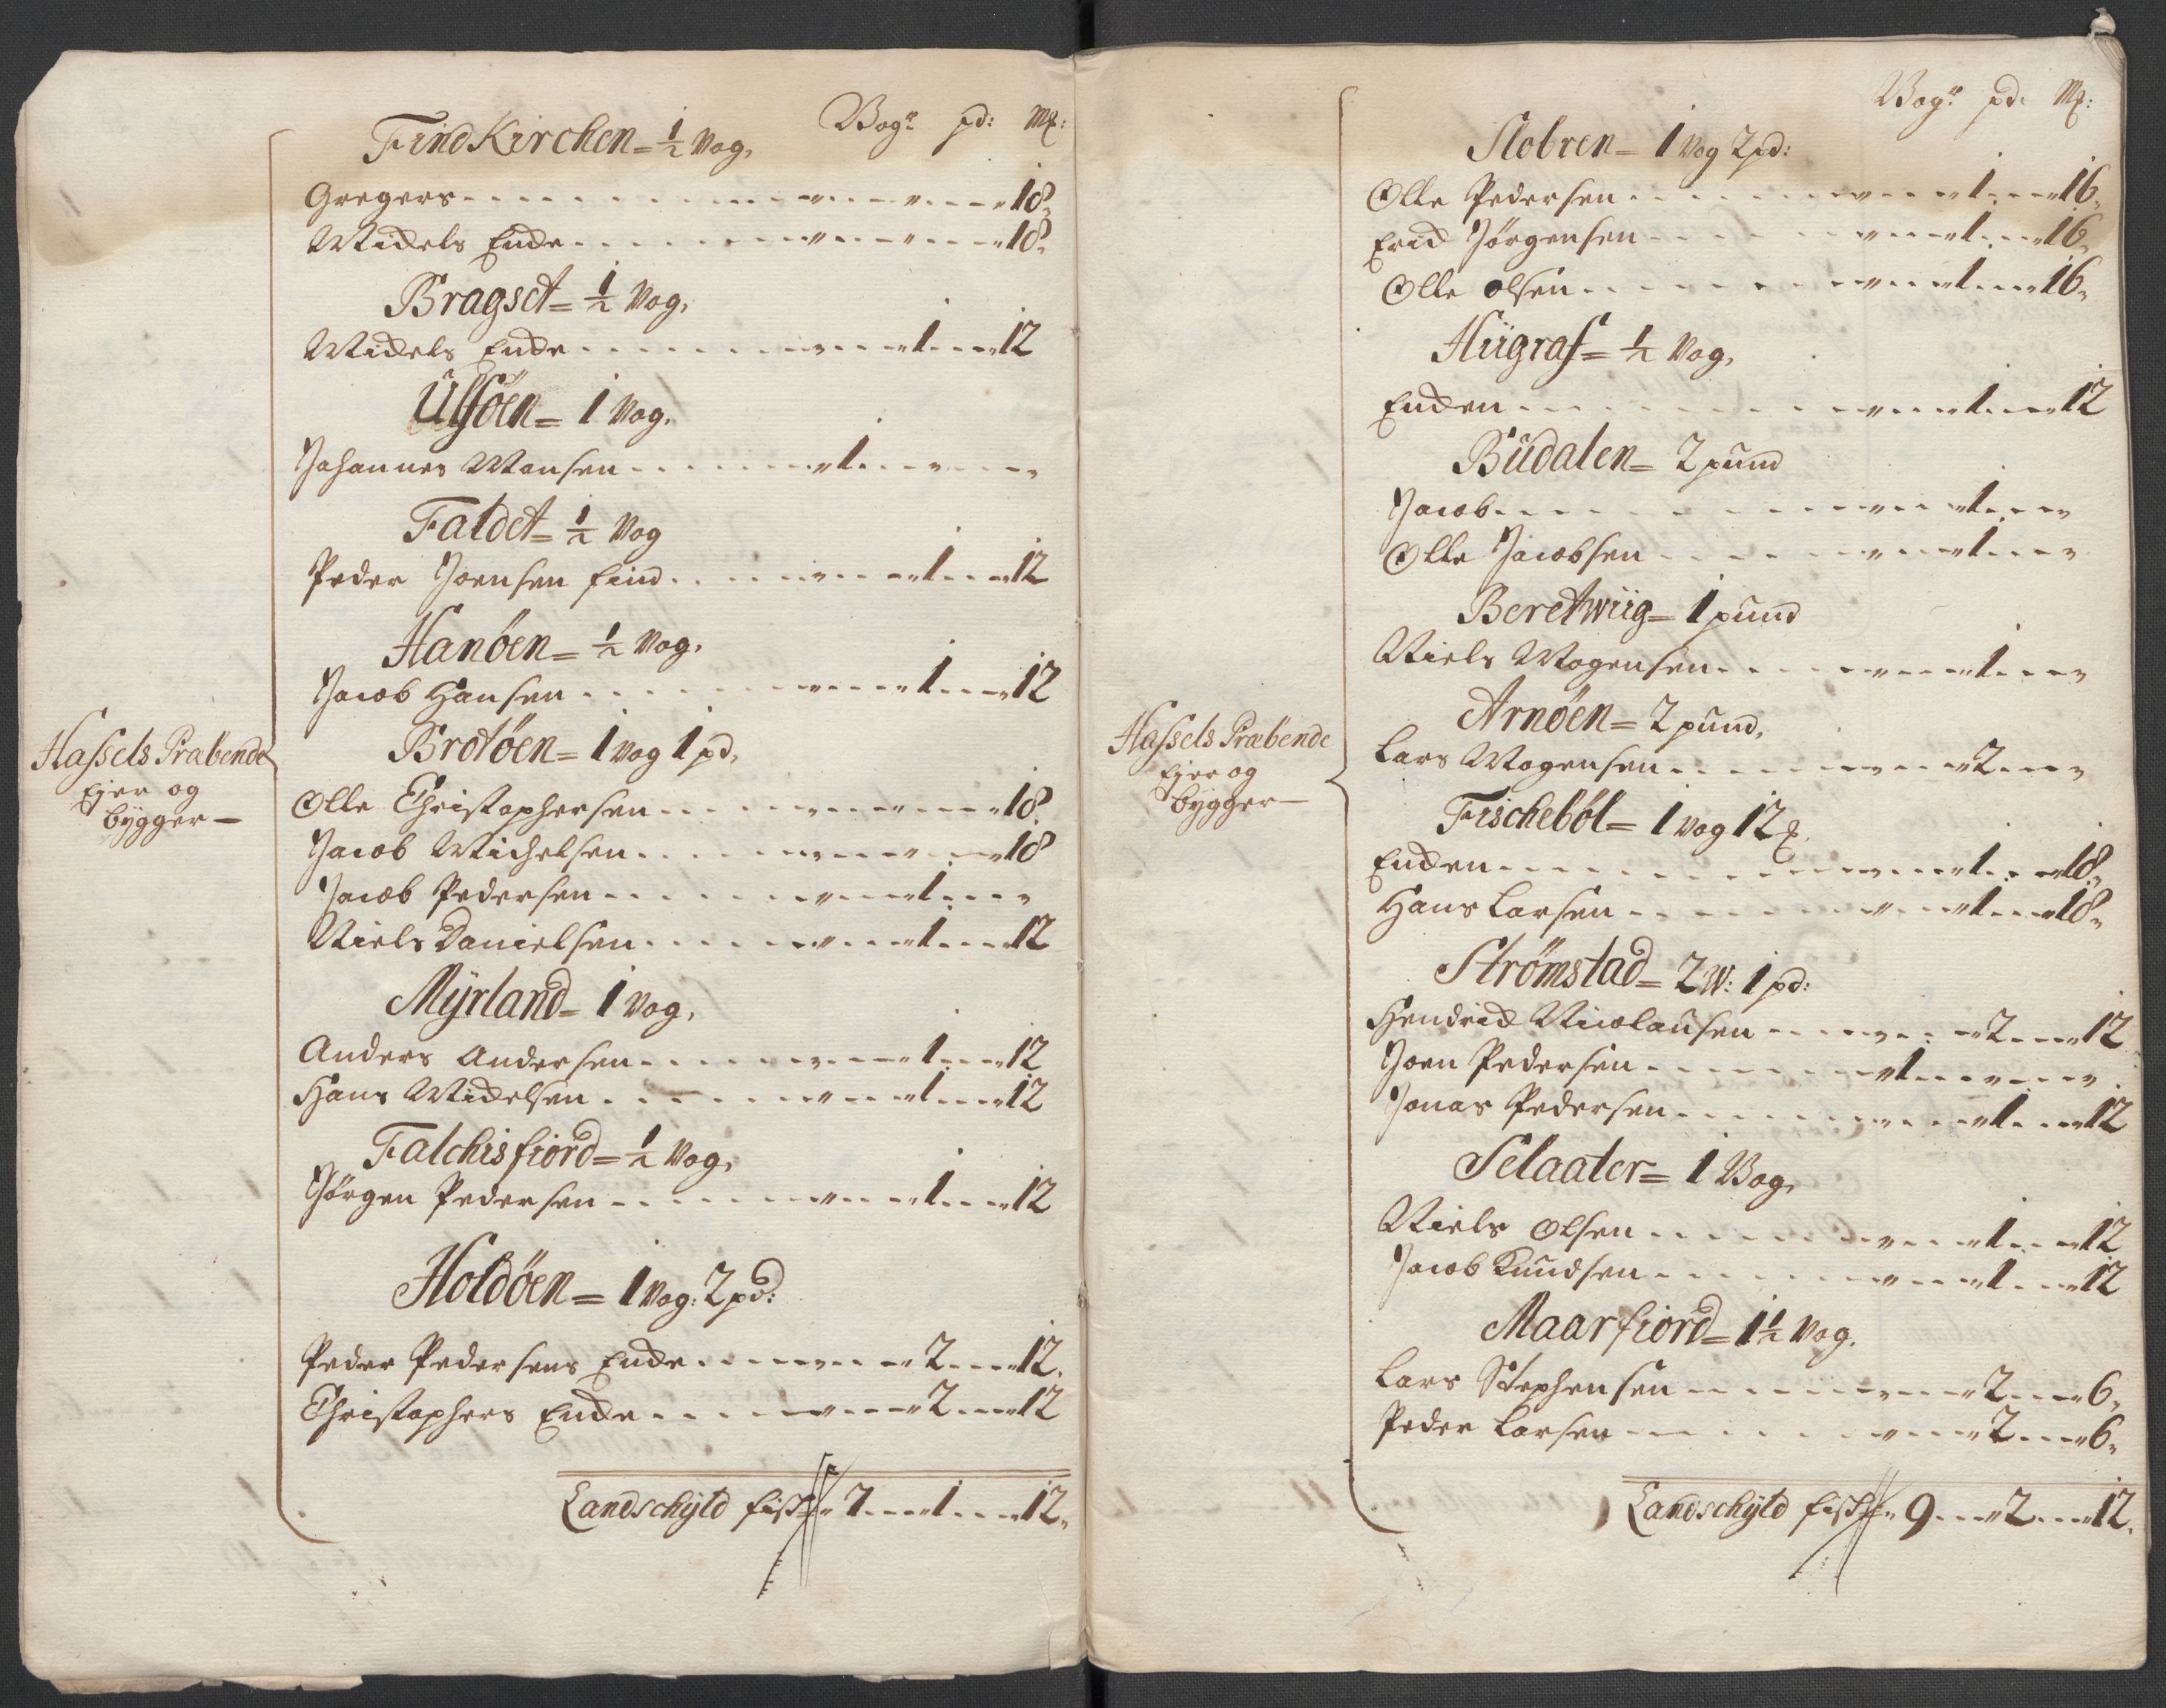 Vogr pd: Mk:
FindKirchen = ½ Vog,
Gregers 18,
Midels Ende 18,
Bragset = ½ Vog,
Midels Ende 1 12
Ulföen = 1 Vog,
Johannes Monsen 1
Faldet = ½ Vog
Peder Joensen find 1 12
Hanöen = ½ Vog,
Jacob Hansen 1 12
Brotöen = 1 Vog 1 pd,
Hassels Præbende
Ejer og
bÿgger
Olle Christophersen 18
Jacob Michelsen 18
Jacob Pedersen 1
Niels Danielsen 1 12
Mÿrland = 1 Vog,
Anders Andersen 1 12
Hans Midelsen 1 12
Falchisfiord = ½ Vog,
Jörgen Pedersen 1 12
Holdöen = 1 Vog: 2 pd:
Peder Pedersens Ende 2 12
Christophers Ende 2 12
Landschÿld fisk 7 1 12,
Vogr pd: Mk:
Slobren = 1 Vog 2 pd:
Olle Pedersen 1 16,
Erid Jörgensen 1 16,
Olle olsen 1 16,
Hügraf = ½ Vog,
Enden 1 12
Büdalen = 2 pund
Jacob 1
Olle Jacobsen 1
Beretwiig = 1 pund
Niels Mogensen 1
Arnöen = 2 pund,
Lars Mogensen 2
Hassels Præbende
Ejer og
bÿgger
Fischeböl = 1 Vog 12
Enden 1 18,
Hans Larsen 1 18,
Strömstad = 2 W: 1 pd:
Hendrid Nicolausen 2 12
Joen Pedersen 1
Jonas Pedersen 1 12
Selaater = 1 Vog,
Niels Olsen 1 12
Jacob Knudsen 1 12
Maarfiord = 1½ Vog,
Lars Stephensen 2 6,
Peder Larsen 2 6,
Landschÿld fisk 9 2 12,